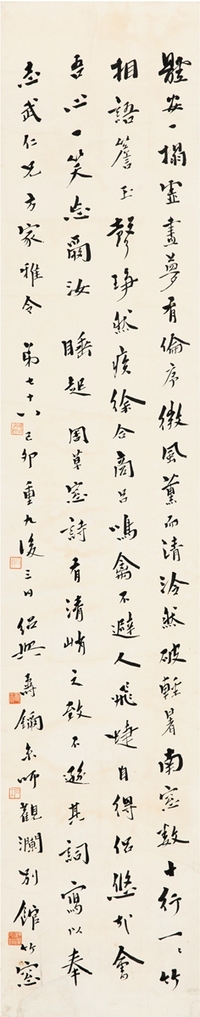 體安一榻虛晝夢有倫序微風薰而清泠然破輕暑南窗數十行一一竹
相語簷玉聲琤然疾徐合商呂鳴禽不避人飛蜨自得侶悠哉會
吾心一笑忘爾汝 睡起 周草窗詩有清峭之致不遜其詞寫以奉
志武仁兄方家雅令 第七十八 己卯重九後三日紹興壽鑈京師觀瀾別館竹窗